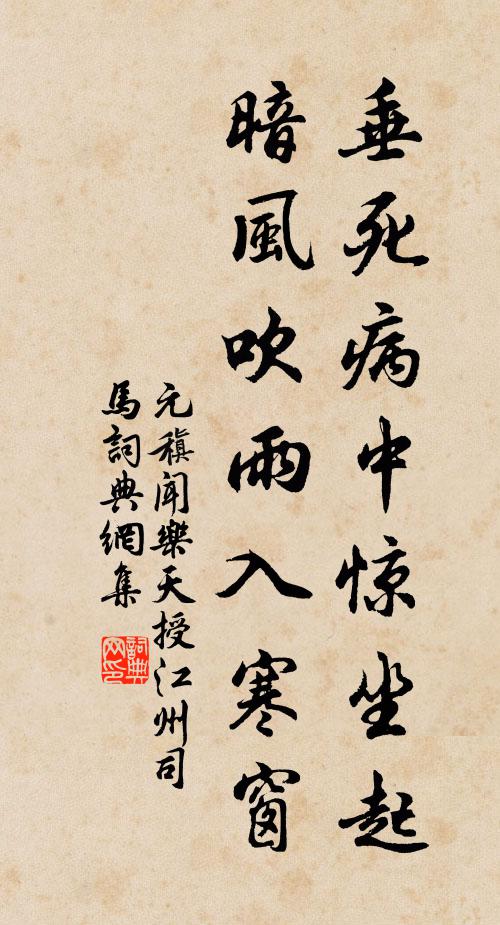 垂死病中惊坐起
暗風吹雨入寒窗
元稹聞樂天授江州司
馬詞典網集
詞典
网印